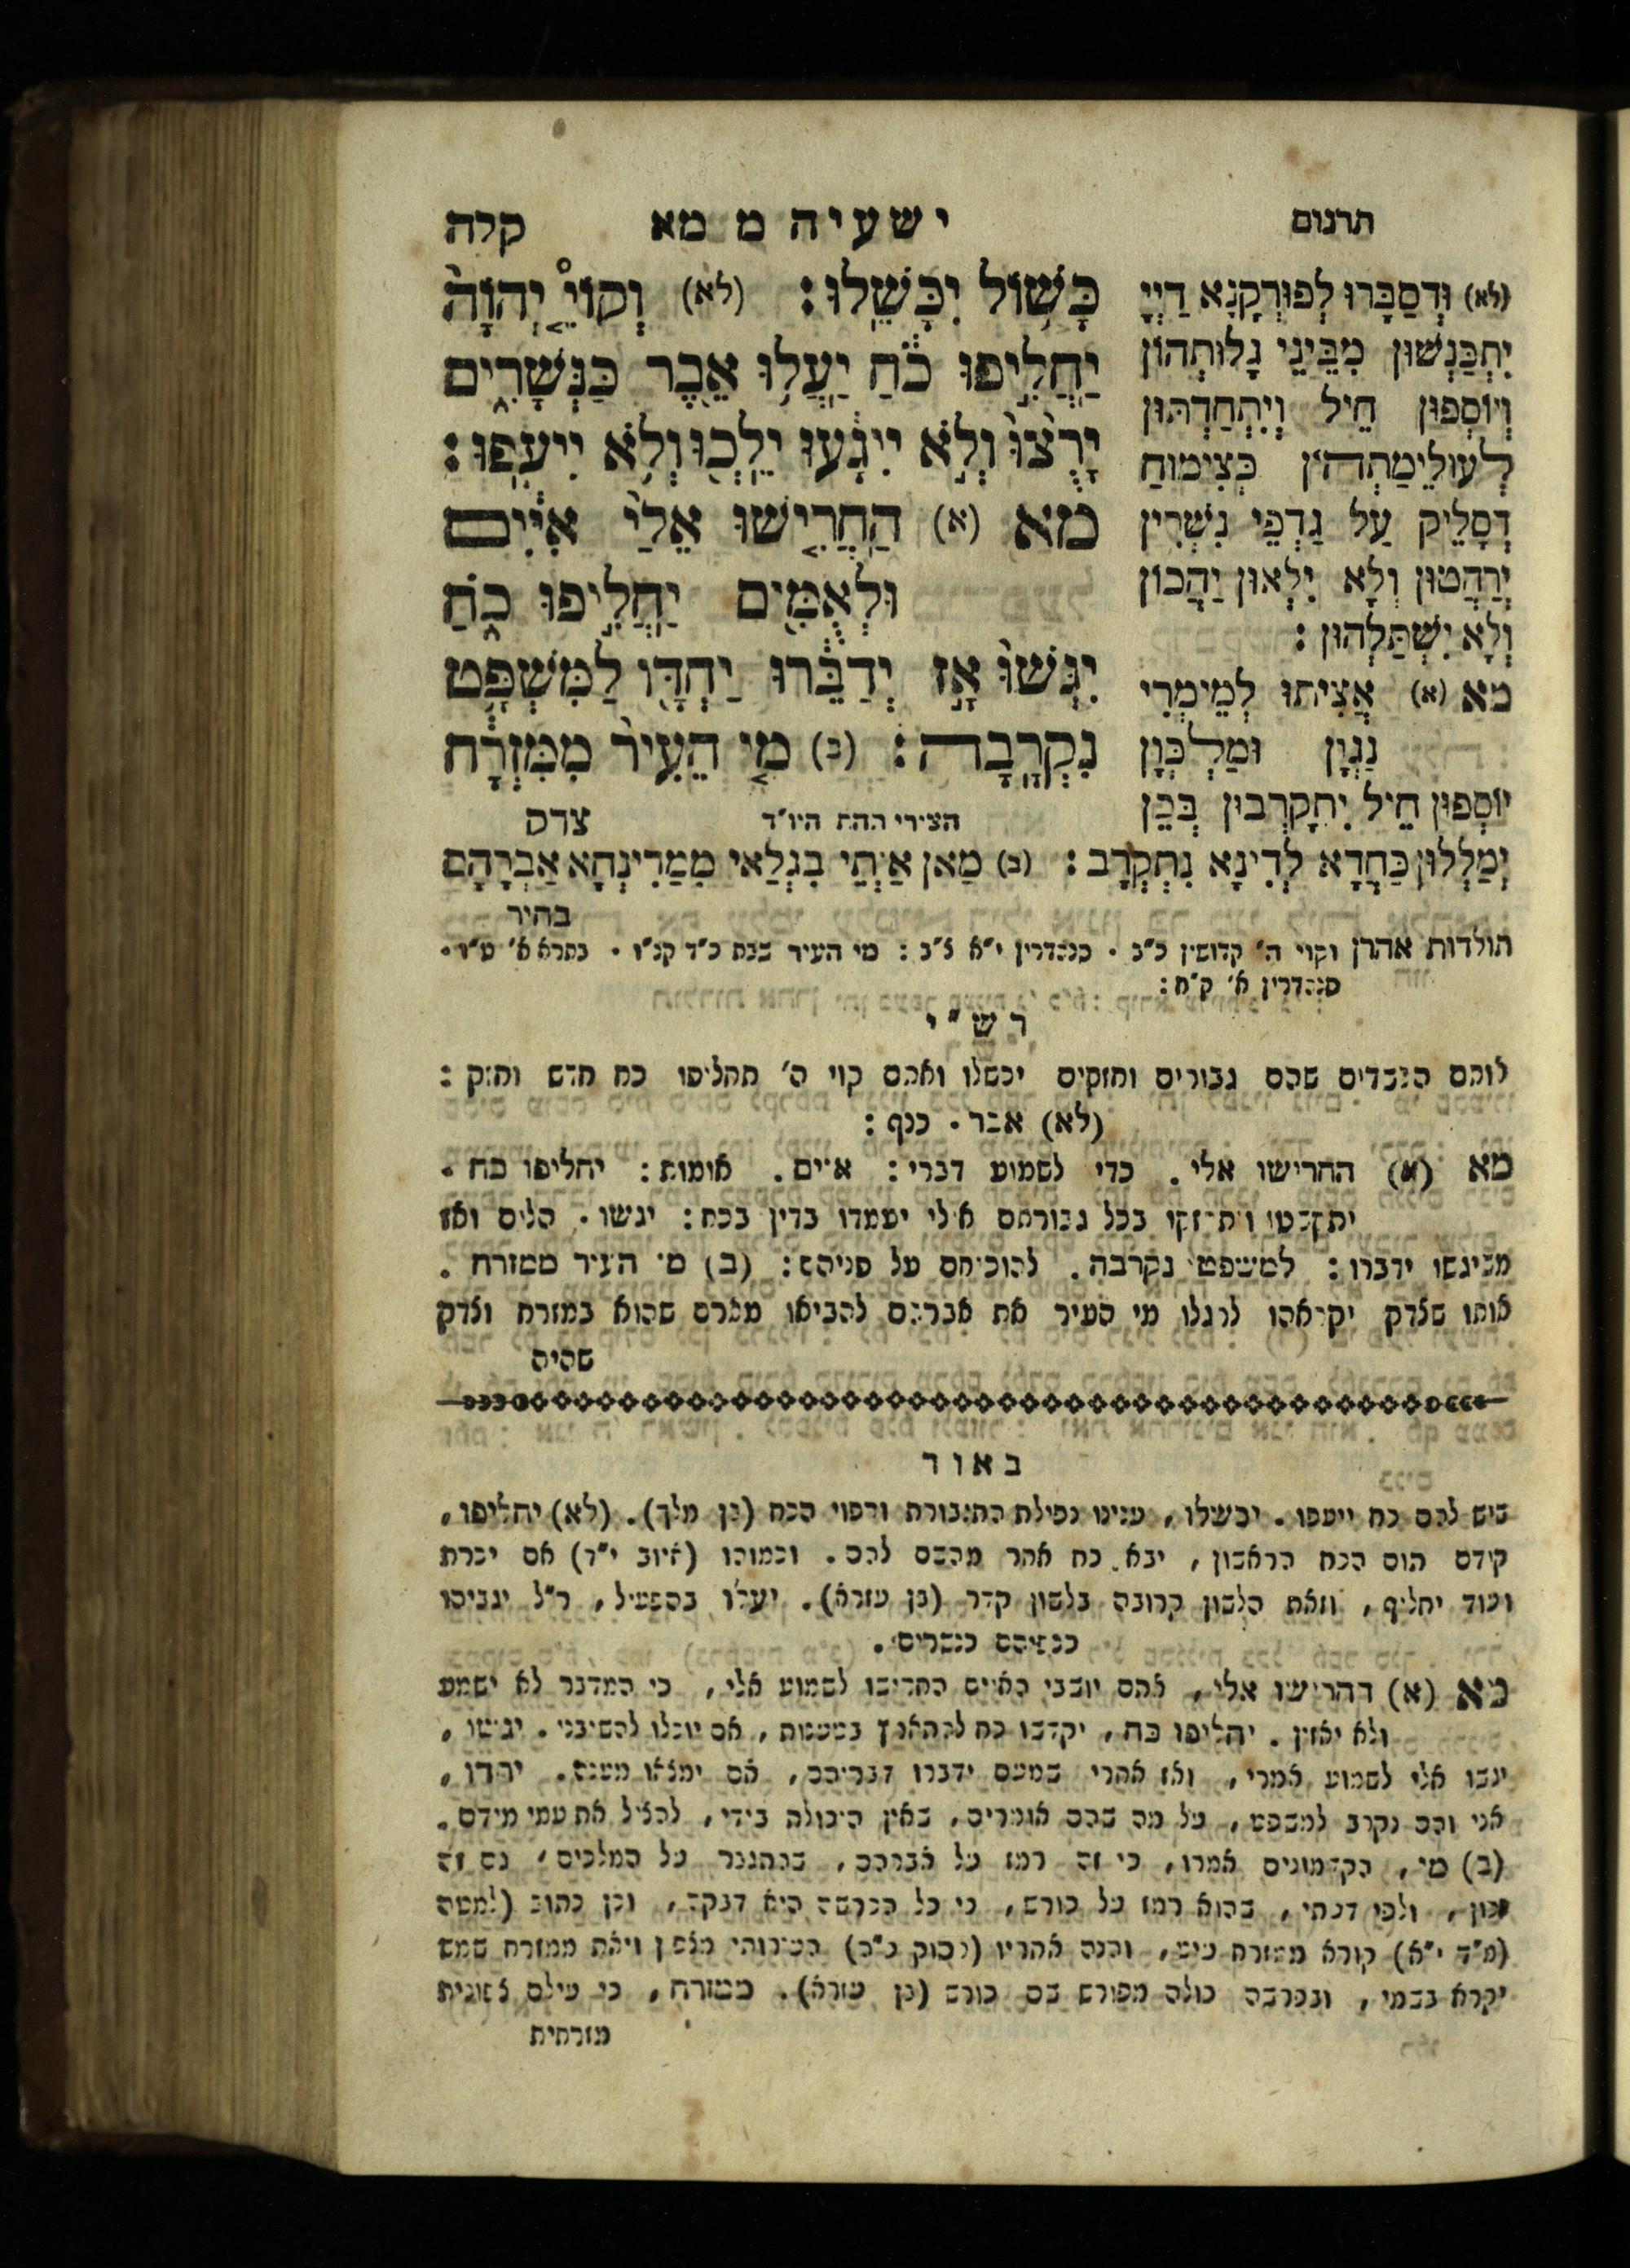 תרגום
ישעיה מ מא
קלה
כָּשׁוֹל יִכָּשֵׁלוּ: (לא) וְקוֹיֵ יְהוָֹה
יַחֲלִיפוּ כֹחַ יַעֲלוּ אֵבֶר כַּנְּשָׁרִים
יָרֻצוּ וְלֹא יִיגָעוּ יֵלְכוּ וְלֹא יִיעָפוּ:
מא (א) הַחֲרִישׁוּ אֵלַי אִיִּים
וּלְאֻמִּים יַחֲלִיפוּ כֹחַ
יִגְּשׁוּ אָז יְדַבֵּרוּ יַחְדָּו לַמִּשְׁפָּט
נִקְרָבָה: (ב) מִי הֵעִיר מִמִּזְרָח
הצירי תחת היו"ד
צדק
(לא) וּדְסַבָּרוּ לְפוּרְקָנָא דַיְיָ
יִתְכַּנְשׁוּן מִבֵּינֵי גָלוּתְהוֹן
וְיוֹסְפוּן חֵיל וְיִתְחַדְתּוּן
לְעוּלֵימַתְהוֹן כְּצִימוּחַ
דְסָלֵיק עַל גַדְפֵּי נִשְׁרִין
יְרַהֲטוּן וְלָא יִלְאוּן יַהֲכוּן
וְלָא יִשְׁתַּלְהוּן:
מא (א) אֲצִיתוּ לְמֵימְרִי
נַגְוָן וּמַלְכְּוָן
יוֹסְפוּן חֵיל יִתְקָרְבוּן בְּכֵן
יְמַלְלוּן כַּחֲדָא לְדִינָא נִתְקְרָב: (ב) מַאן אַיְתֵי בִגְלַאי מִמַּדִינְחָא אַבְרָהָם
בחיר
תולדות אהרן וקוי ה' קדושין פ"ב. סנהדרין י"א צ"ב: מי העיר שבת כ"ד קנ"ו. בתרא א' ט"ו.
סנהדרין א' ק"ח:
רש"י
לותם הנכבדים שהם גבורים וחזקים יכשלו ואתם קוי ה' תחליפו כח חדש וחזק:
(לא) אבר. כנף:
מא (א) החרישו אלי. כדי לשמוע דברי: איים. אומות: יחליפו כח.
יתקשטו ויתחזקו בכל גבורתם אולי יעמדו בדין בכח: יגשו. הלום ואז
משיגשו ידברו: למשפט נקרבה. להוכיחם על פניהם: (ב) מי העיר ממזרח.
אותו שצדק יקראהו לרגלו מי העיר את אברהם להביאו מארם שהוא במזרח וצדק
שהיה
באור
שיש להם כח ייעפו. יכשלו, ענינו נפילת התגבורת ורפוי הכח (בן מלך). (לא) יחליפו,
קודם תום הכח הראשון, יבא כח אחר מהשם להם. וכמוהו (איוב י"ד) אם יכרת
ועוד יחליף, וזאת הלשון קרובה בלשון קדר (בן עזרא). יעלו בהפעיל, ר"ל יגביהו
כנפיהם כנשרים.
מא (א) החרישו אלי, אתם יושבי האיים החרישו לשמוע אלי, כי המדבר לא ישמע
ולא יאזין. יחליפו כח, יקדשו כח להתאמץ בטענות, אם יוכלו להשיבני. יגשו,
יגשו אלי לשמוע אמרי, ואז אחרי שמעם ידברו דבריהם, אם ימצאו מענה. יחדו,
אני והם נקרב למשפט, על מה שהם אומרים, שאין היכולה בידי, להציל את עמי מידם.
(ב) מי, הקדמונים אמרו, כי זה רמז על אברהם, שהתגבר על המלכים, גם זה
נכון, ולפי דעתי, שהוא רמז על כורש, כי כל הפרשה היא דבקה, וכן כתוב (למטה
(מ"ו י"א) קורא ממזרח עיט, והנה אחריו (פסוק כ"ה) העירותי מצפון ויאת ממזרח שמש
יקרא בשמי, ובפרשה כולה מפורש שם כורש (בן עזרא). ממזרח, כי עילם צפונית
מזרחית